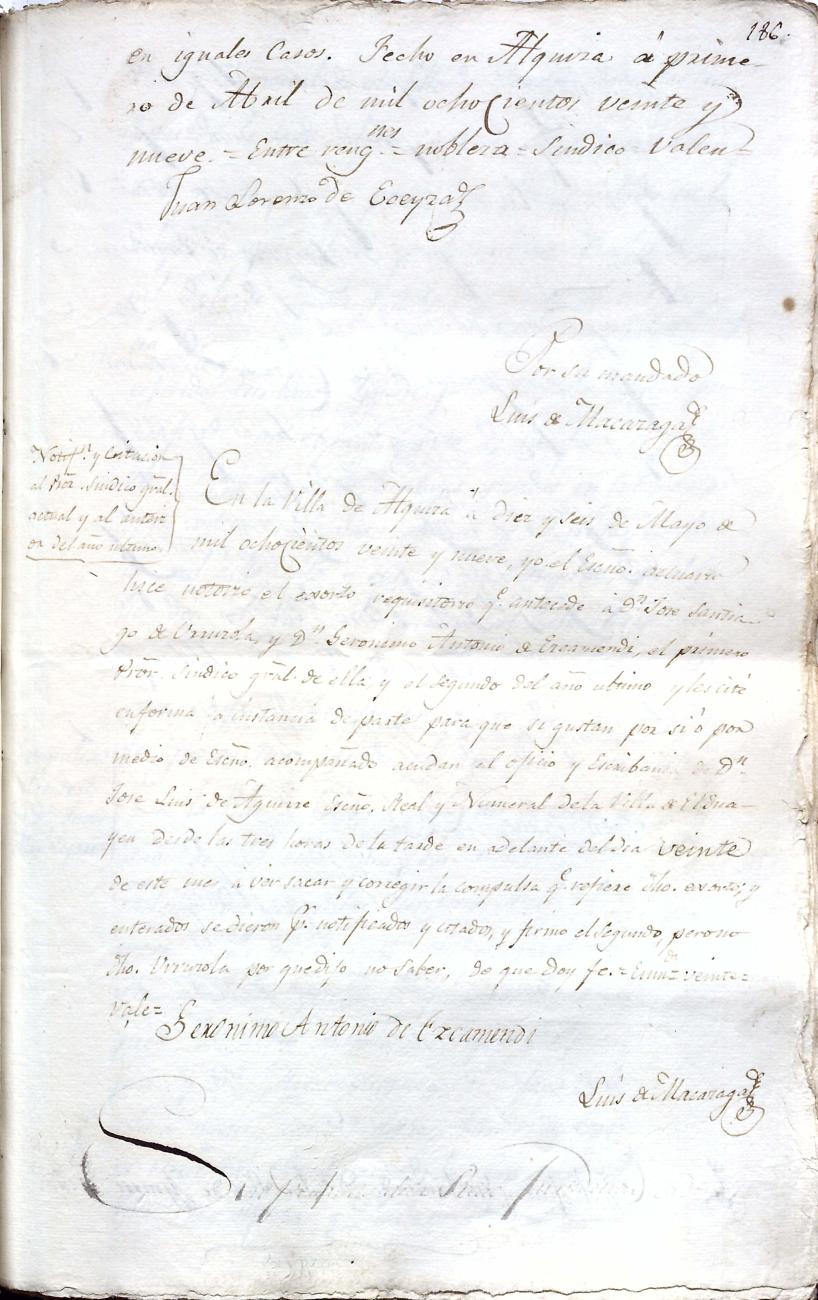 186.
en iguales Casos. Fecho en Alquiza á prime-
ro de Abril de mil ochocientos veinte y
nueve. = Entre reng.nes = nobleza = Sindico = Valen =
Juan Lorenzo de Eceyza
Por su mandado
Luis de Macazaga
Notif.n y Citacion
al Pror. Sindico gral.
actual y al anteri-
or del año ultimo.
En la Villa de Alquiza á diez y seis de Mayo de
mil ochocientos veinte y nueve, yo el Esño. actuario
hice notorio el exorto requisitorio q.e antecede á D.n Jose Santia-
go de Urruzola, y D.n Geronimo Antonio de Ezcamendi, el primero
Pror. Sindico gral. de ella y el segundo del año ultimo y les cité
en forma á instancia de parte para que si gustan por si ó por
medio de Esño. acompañado acudan al oficio y Escribania de D.n
Jose Luis de Aguirre Esño. Real y Numeral de la Villa de Eldua-
yen desde las tres horas de la tarde en adelante del dia veinte
de este mes á ver sacar y corregir la compulsa q.e refiere dho. exorto; y
enterados se dieron p.r notificados y citados, y firmó el segundo, pero no
dho. Urruzola por que dijo no saber, de que doy fe. = Enm.do veinte =
Vale =
Geronimo Antonio de Ezcamendi
Luis de Macazaga